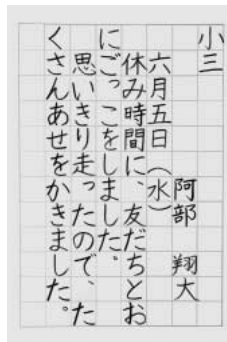 小三
阿部 翔大
六月五日(水)
休み時間に、友だちとお
にごっこをしました。
思いきり走ったので、た
くさんあせをかきました。